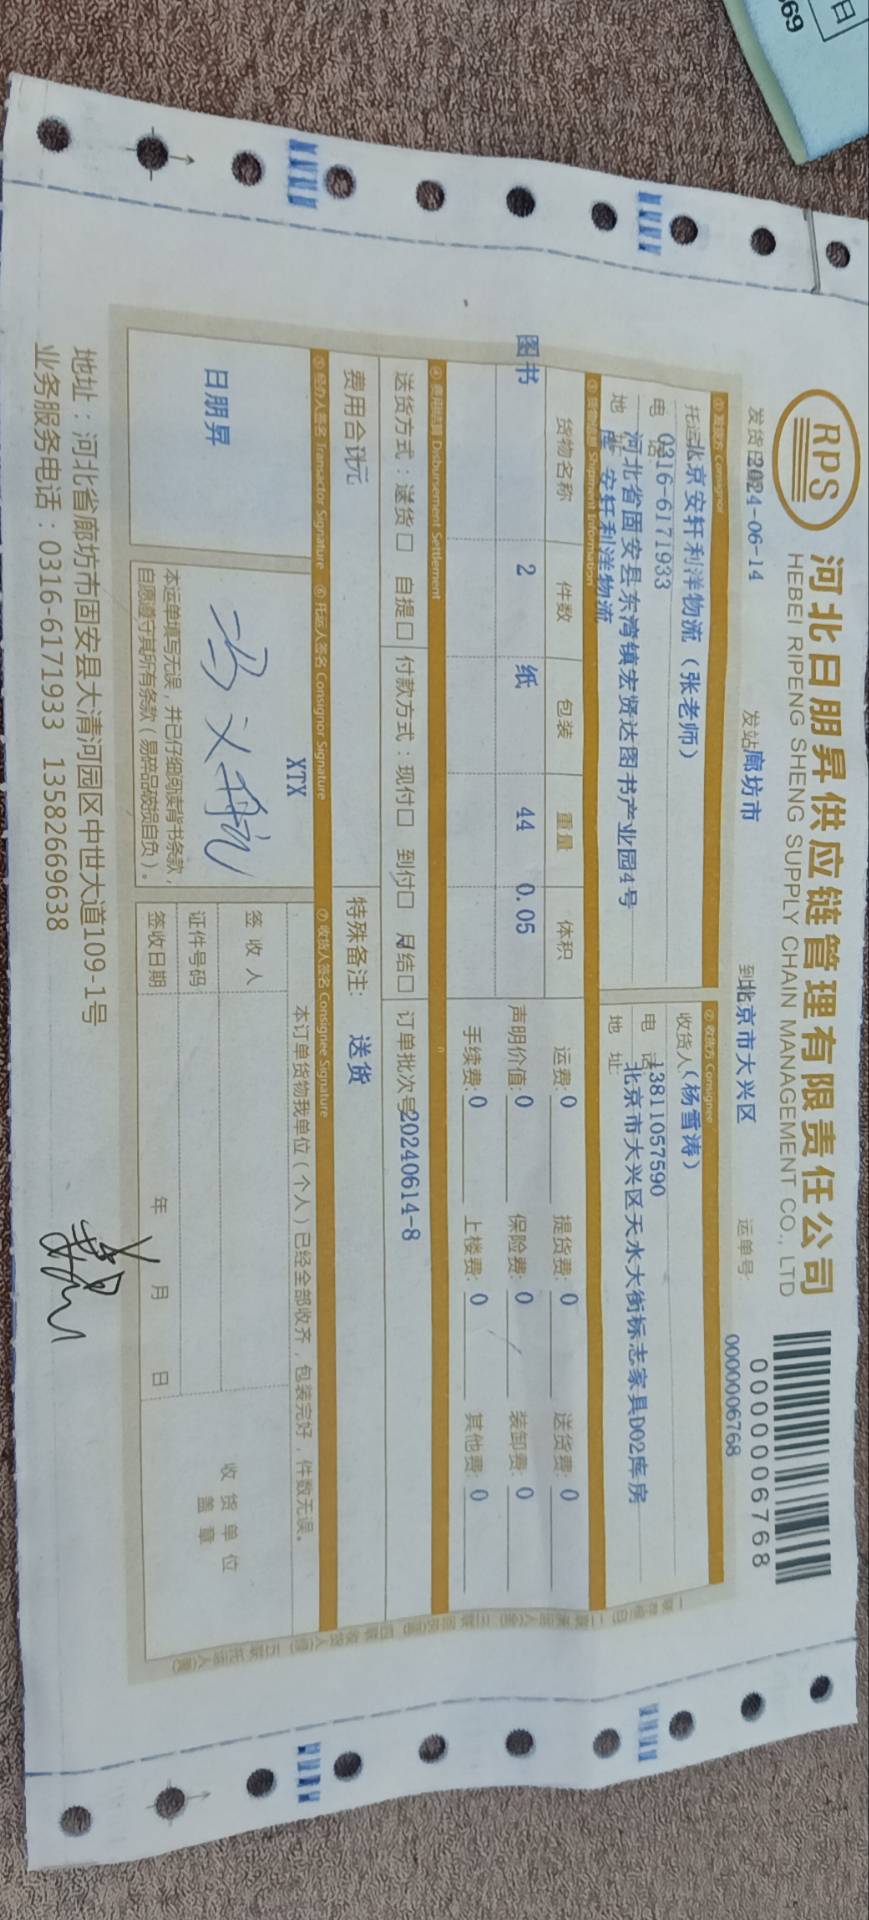 日
69
RPS
河北日朋昇供应链管理有限责任公司
HEBEI RIPENG SHENG SUPPLY CHAIN MANAGEMENT CO., LTD
0000006768
发货日2024-06-14 发站廊坊市 到北京市大兴区 运单号 0000006768
① 发货方 Consignor ② 收货方 Consignee
托运北京安轩利洋物流（张老师） 收货人（杨雪涛）
电话0316-6171933 电话13811057590
地址河北省固安县东湾镇宏贤达图书产业园4号 地址北京市大兴区天水大街标志家具D02库房
库 安轩利洋物流
③ 货物信息 Shipment Information
货物名称 件数 包装 重量 体积 运费:0 提货费:0 送货费:0
图书 2 纸 44 0.05 声明价值:0 保险费:0 装卸费:0
手续费:0 上楼费:0 其他费:0
④ 费用结算 Disbursement Settlement
送货方式：送货□ 自提□ 付款方式：现付□ 到付□ 月结□ 订单批次号20240614-8
费用合计元 特殊备注: 送货
⑤ 经办人签名 Transactor Signature ⑥ 托运人签名 Consignor Signature ⑦ 收货人签名 Consignee Signature
XTX 本订单货物我单位（个人）已经全部收齐，包装完好，件数无误。
日朋昇
签收人
证件号码
签收日期 年 月 日
收货单位
盖章
本运单填写无误，并已仔细阅读背书条款，
自愿遵守其所有条款（易碎品破损自负）。
地址：河北省廊坊市固安县大清河园区中世大道109-1号
业务服务电话：0316-6171933 13582669638